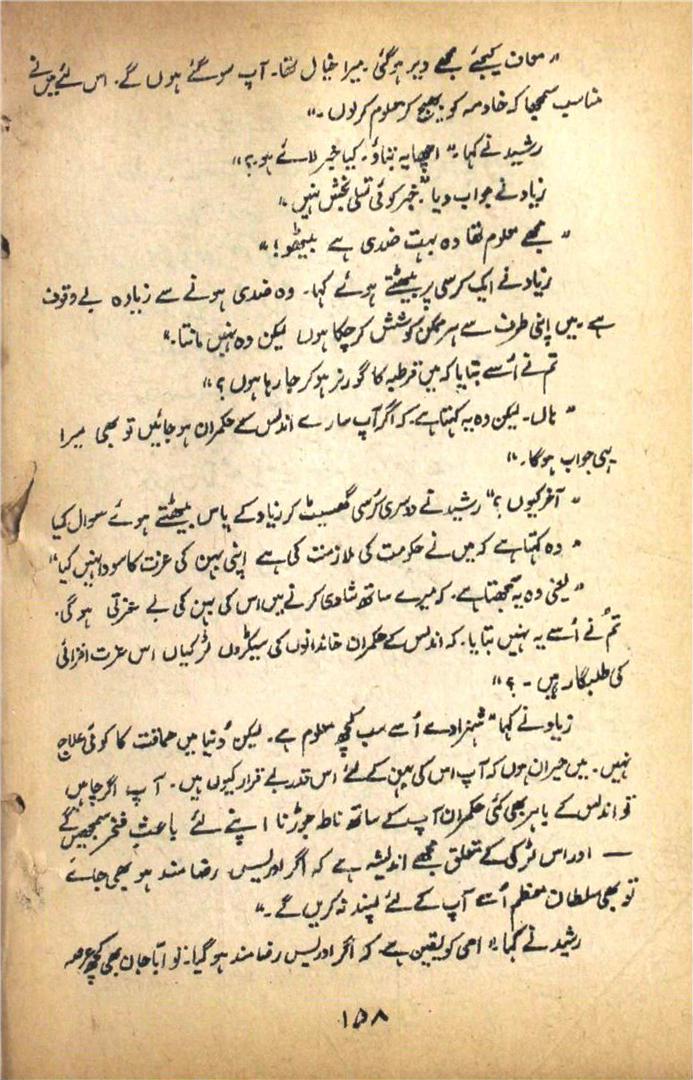 "معاف کیجئے مجھے دیر ہوگئی۔ میرا خیال تھا۔ آپ سو گئے ہوں گے۔ اس لئے میں نے
مناسب سمجھا کہ خادمہ کو بھیج کر معلوم کر لوں۔"
رشید نے کہا۔ "اچھا یہ بتاؤ۔ کیا خبر لائے ہو؟"
زیاد نے جواب دیا "خبر کوئی تسلی بخش نہیں"
"مجھے معلوم تھا وہ بہت ضدی ہے بیٹھو!"
زیاد نے ایک کرسی پر بیٹھتے ہوئے کہا۔ وہ ضدی ہونے سے زیادہ بے وقوف
ہے۔ میں اپنی طرف سے ہر ممکن کوشش کر چکا ہوں لیکن وہ نہیں مانتا۔"
تم نے اُسے بتایا کہ میں قرطبہ کا گورنر ہو کر جا رہا ہوں؟"
"ہاں۔ لیکن وہ یہ کہتا ہے۔ کہ اگر آپ سارے اندلس کے حکمران ہو جائیں تو بھی میرا
یہی جواب ہوگا۔"
"آخر کیوں؟" رشید نے دوسری کرسی گھسیٹ کر زیاد کے پاس بیٹھتے ہوئے سوال کیا
"وہ کہتا ہے کہ میں نے حکومت کی ملازمت کی ہے اپنی بہن کی عزت کا سودا نہیں کیا"
"یعنی وہ یہ سمجھتا ہے۔ کہ میرے ساتھ شادی کرنے میں اس کی بہن کی بے عزتی ہو گی۔
تم نے اُسے یہ نہیں بتایا۔ کہ اندلس کے حکمران خاندانوں کی سیکڑوں لڑکیاں اس عزت افزائی
کی طلبگار ہیں۔؟"
زیاد نے کہا "شہزادے اُسے سب کچھ معلوم ہے۔ لیکن دُنیا میں حماقت کا کوئی علاج
نہیں۔ میں حیران ہوں کہ آپ اس کی بہن کے لئے اس قدر بے قرار کیوں ہیں۔ آپ اگر چاہیں
تو اندلس کے باہر بھی کئی حکمران آپ کے ساتھ ناطہ جوڑنا اپنے لئے باعثِ فخر سمجھیں گے
— اور اس لڑکی کے متعلق مجھے اندیشہ ہے کہ اگر ادریس رضا مند ہو بھی جائے
تو بھی سلطان معظم اُسے آپ کے لئے پسند نہ کریں گے۔"
رشید نے کہا۔ "امی کو یقین ہے کہ اگر ادریس رضا مند ہو گیا۔ تو ابا جان بھی کچھ عرصہ
۱۵۸